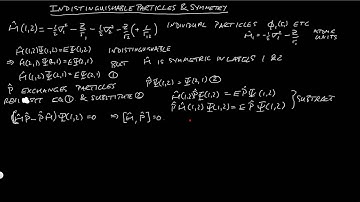 INDISTINGUISHABLE PARTICLES & SYMMETRY
Ĥ(1,2) = -½∇₁² - 2/r₁ - ½∇₂² - 2/r₂ (+ 1/r₁₂) INDIVIDUAL PARTICLES φ₁(r₁) ETC
Ĥ₁ = -½∇₁² - 2/r₁ ATOMIC UNITS
Ĥ(1,2)Ψ(1,2) = EΨ(1,2) INDISTINGUISHABLE
⇒ Ĥ(2,1)Ψ(2,1) = EΨ(2,1) BUT Ĥ IS SYMMETRIC IN LABELS 1 & 2
⇒ Ĥ(1,2)Ψ(2,1) = EΨ(2,1) ①
P̂ EXCHANGES PARTICLES P̂Ψ(1,2) = Ψ(2,1) ②
EQ ① & SUBSTITUTE ② Ĥ(1,2)P̂Ψ(1,2) = EP̂Ψ(1,2)
P̂Ĥ(1,2)Ψ(1,2) = EP̂Ψ(1,2) } SUBTRACT
(ĤP̂ - P̂Ĥ)Ψ(1,2) = 0 ⇒ [Ĥ,P̂] = 0